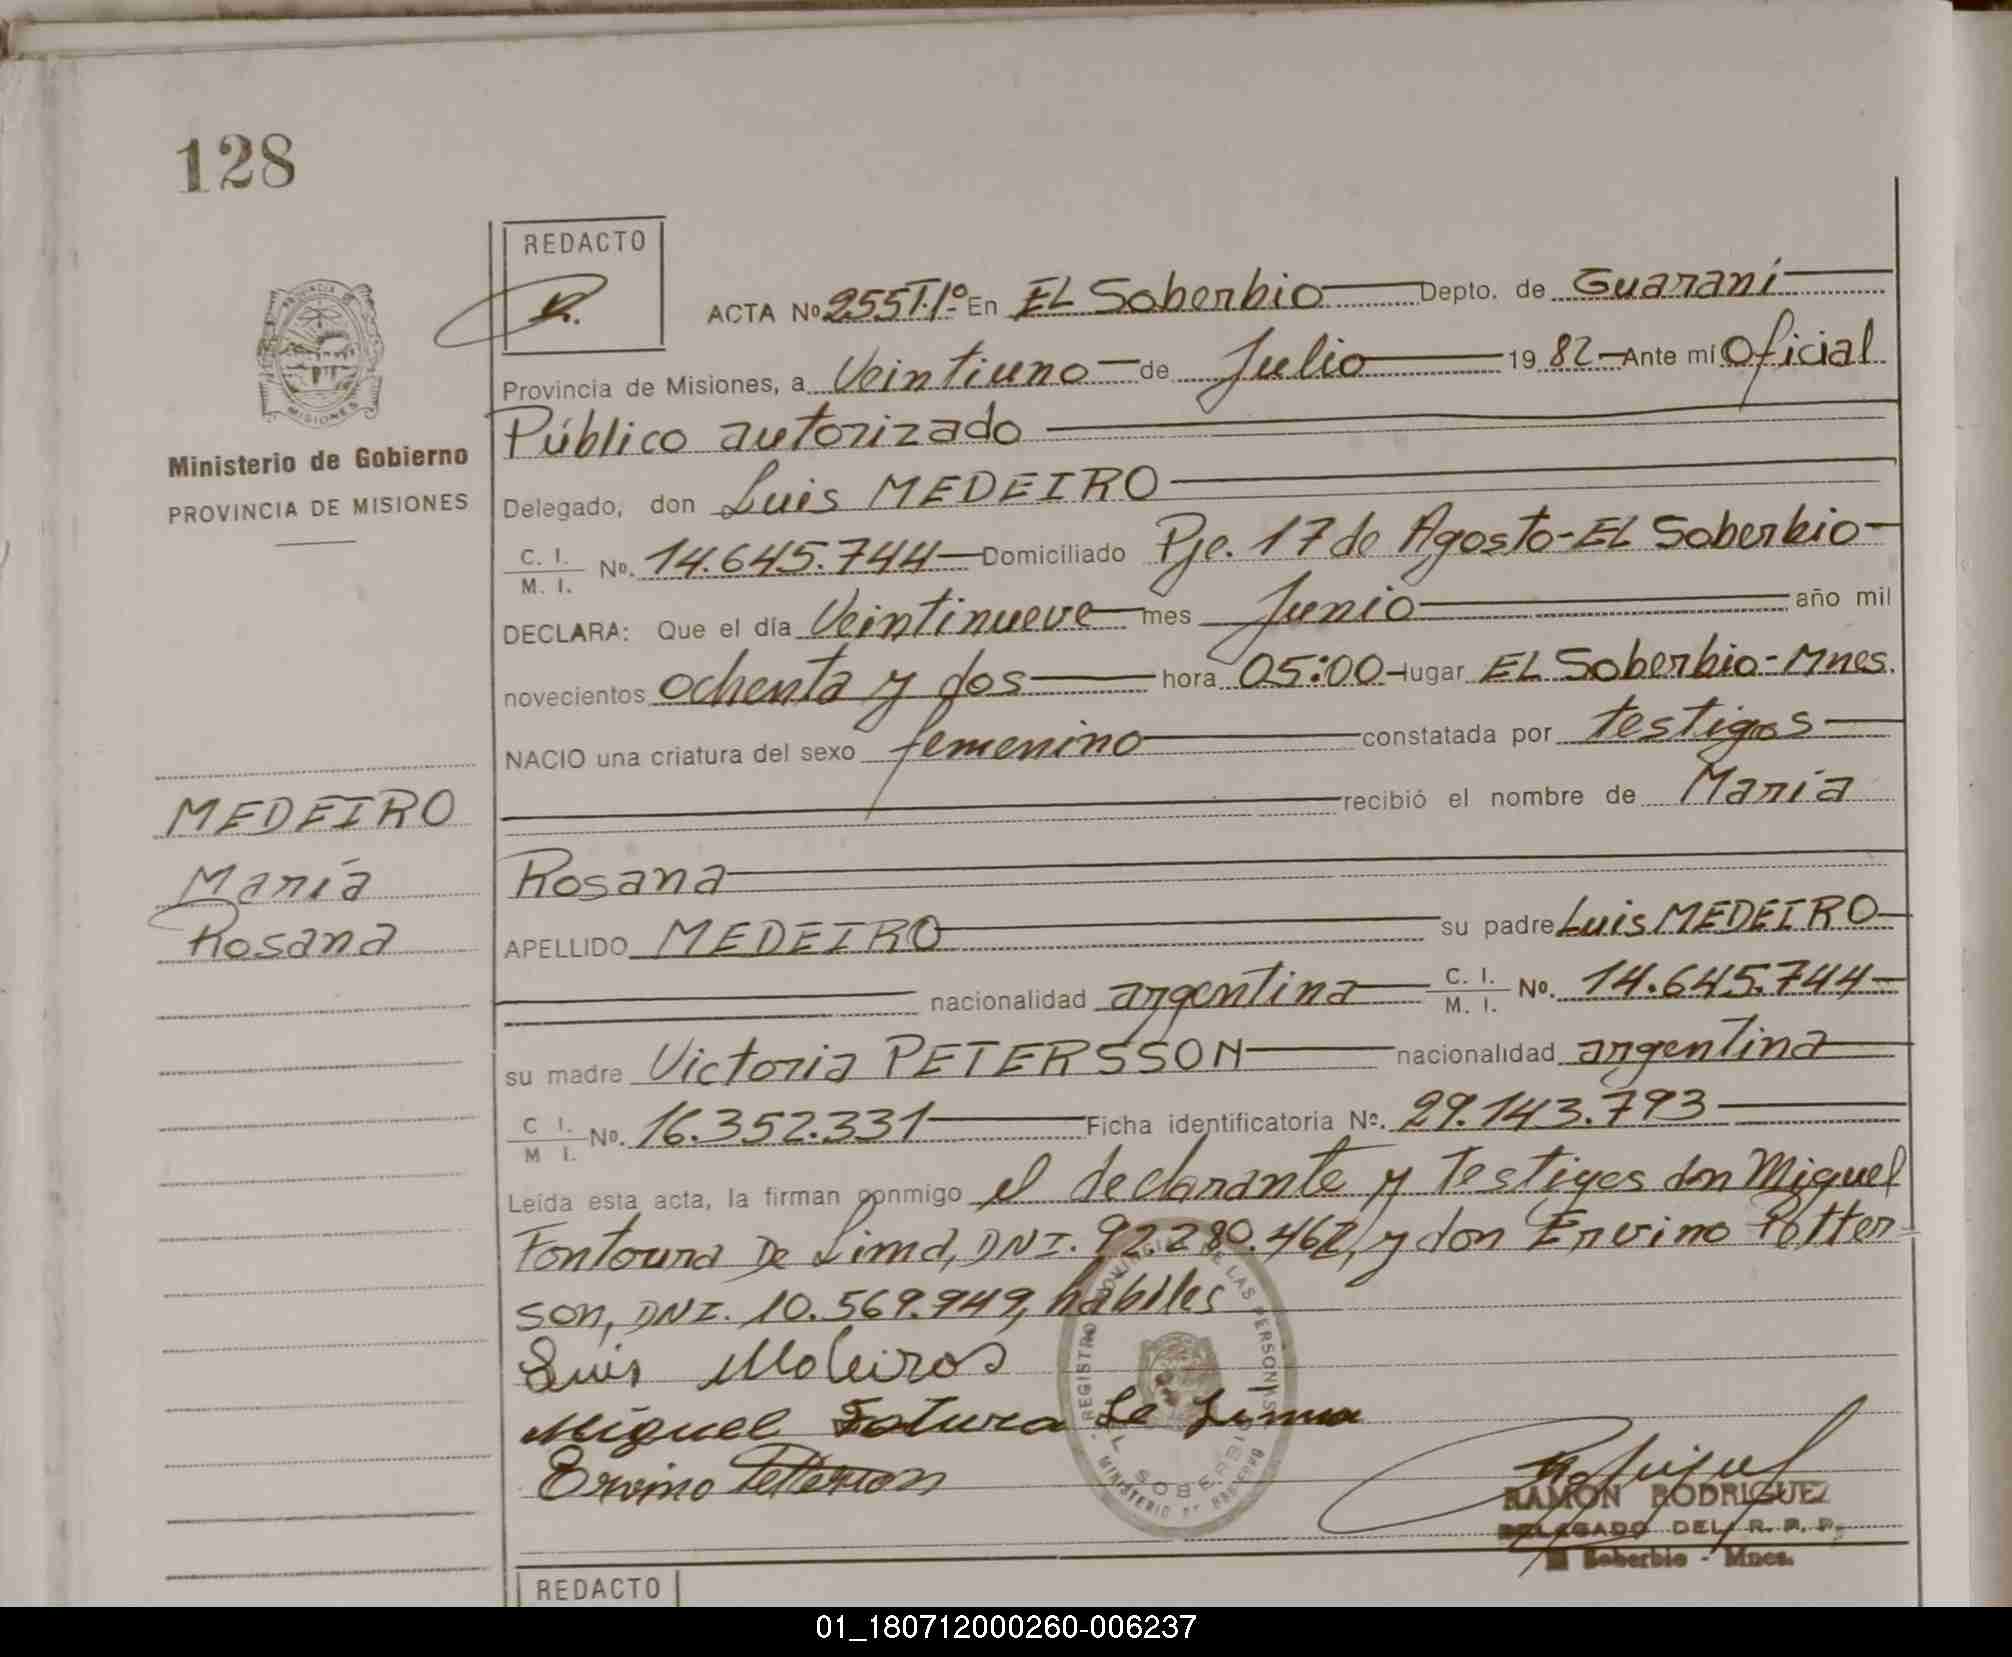 128
REDACTO
R.
ACTA Nº 255T.1º En EL Soberbio Depto. de Guaraní
Provincia de Misiones, a Veintiuno de Julio 1982 Ante mí Oficial
Público autorizado
Ministerio de Gobierno
PROVINCIA DE MISIONES
Delegado, don Luis MEDEIRO
C. I. / M. I. Nº. 14.645.744 Domiciliado Pje. 17 de Agosto-EL Soberbio-
DECLARA: Que el día Veintinueve mes Junio año mil
novecientos ochenta y dos hora 05:00 lugar EL Soberbio-Mnes.
NACIO una criatura del sexo femenino constatada por testigos
recibió el nombre de María
Rosana
MEDEIRO
María
Rosana
APELLIDO MEDEIRO su padre Luis MEDEIRO
nacionalidad argentina C. I. / M. I. Nº. 14.645.744
su madre Victoria PETERSSON nacionalidad argentina
C I. / M I. Nº. 16.352.331 Ficha identificatoria Nº. 29.143.793
Leída esta acta, la firman conmigo el declarante y testigos don Miguel
Fontoura De Lima, DNI. 92.280.462, y don Ervino Petter
son, DNI. 10.569.949, hábiles
Luis Medeiros
Miguel Fotura de Lima
Ervino Petterson
REGISTRO PROVINCIAL DE LAS PERSONAS
EL SOBERBIO
MINISTERIO DE GOBIERNO
RAMON RODRIGUEZ
DELEGADO DEL R. P. P.
El Soberbio - Mnes.
REDACTO
01_180712000260-006237